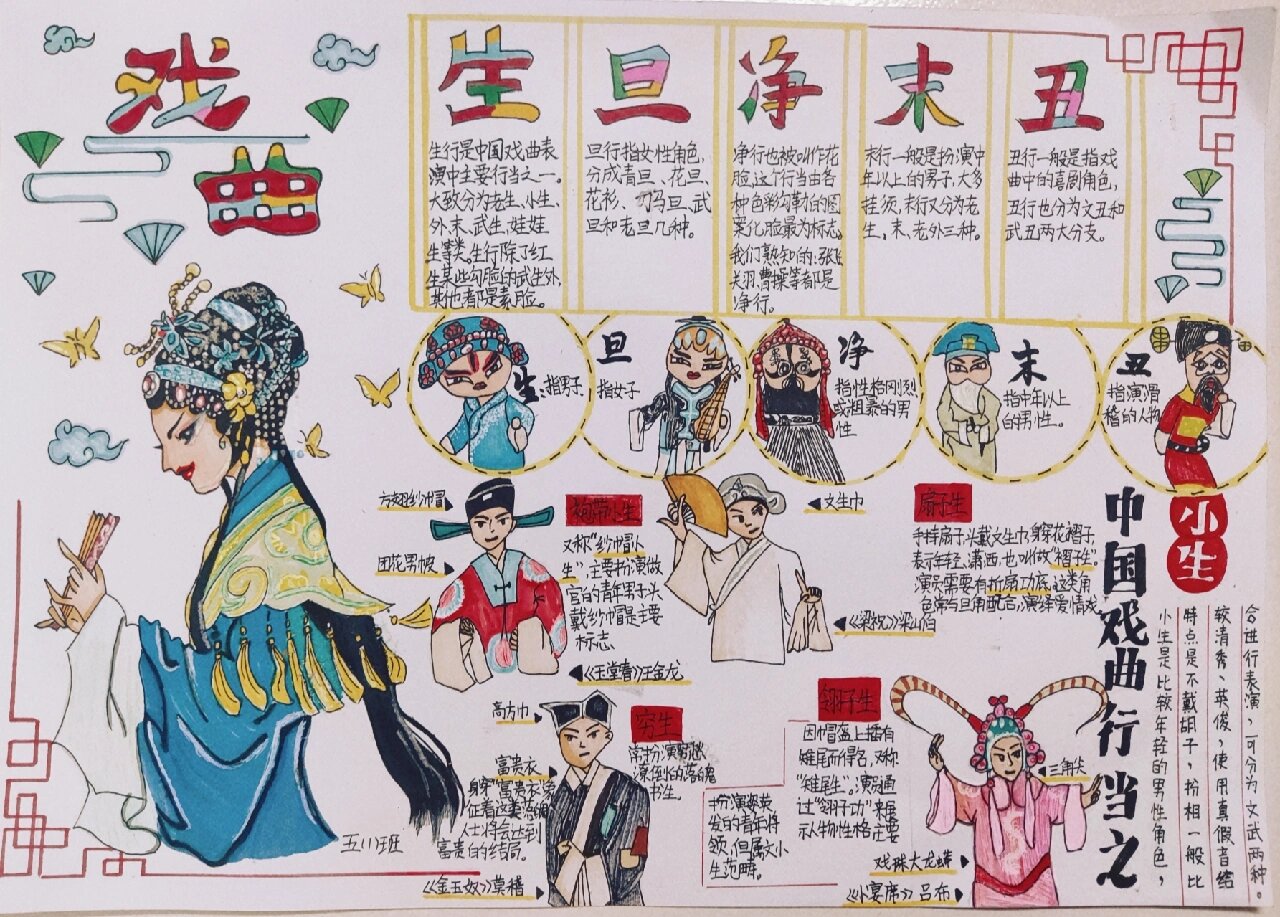 戏
曲
生
生行是中国戏曲表
演中主要行当之一。
大致分为老生、小生、
外末、武生、娃娃
生等类,生行除了红
生某些勾脸的武生外,
其他者都是素脸。
旦
旦行指女性角色,
分成青旦、花旦、
花衫、刀马旦、武
旦和老旦几种。
净
净行也被叫作花
脸,这个行当由各
种色彩勾勒的图
案化脸最为标志。
我们熟知的:张飞
关羽、曹操等者都是
净行。
末
末行一般是扮演中
年以上的男子,大多
挂须,末行又分为老
生,末、老外三种。
丑
丑行一般是指戏
曲中的喜剧角色,
丑行也分为文丑和
武丑两大分支。
生:指男子
旦
指女子
净
指性格刚烈
或粗暴的男
性
末
指中年以上
的男性。
丑
指演滑
稽的人物
方翅纱巾冒
团花男帔
袍带小生
又称“纱巾冒小
生”,主要扮演做
官的青年男子,头
戴纱巾冒是主要
标志
《玉堂春》王金龙
文生巾
《梁祝》梁山伯
扇子生
手持扇子,头戴文生巾,身穿花褶子,
表示年轻、潇洒,也叫做“褶子生”。
演员需要有折扇功底,这类角
色常与旦角配合,演绎爱情戏
高方巾
富贵衣
身穿“富贵衣”象
人士将会达到
富贵的结局。
《金玉奴》莫稽
穷生
书生。
扮演英英
发的青年将
领,但属大小
生范畴。
翎子生
因巾冒盔上插有
雉尾而得名,又称
“雉尾生”。演员通
过“翎子功”来展
示人物性格,主要
三角华
戏珠大龙蟒
《小宴席》吕布
中国戏曲行当之
小生
小生是比较年轻的男性角色,
特点是不戴胡子,扮相一般比
较清秀、英俊,使用真假音结
合进行表演,可分为文武两种。
五(1)班